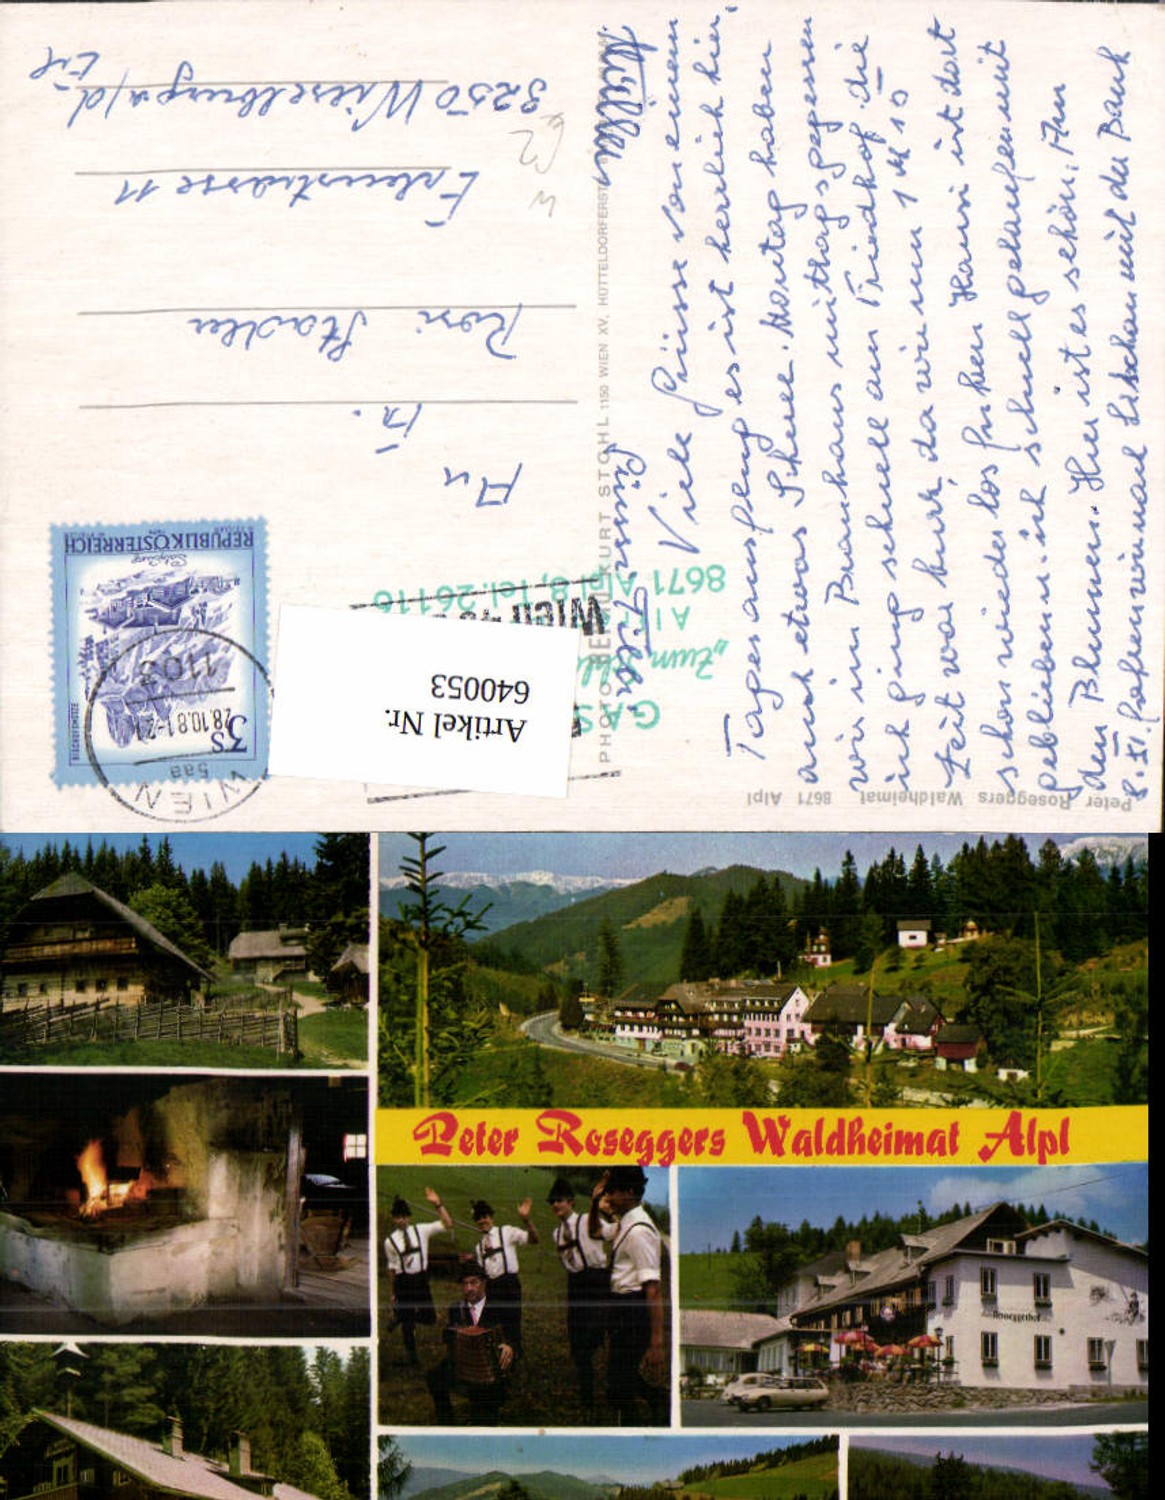 Peter Roseggers Waldheimat 8671 Alpl
Viele Grüsse von einem
Tagesausflug es ist herrlich hier,
auch etwas Schnee. Montag haben
wir im Brauhaus mittags gegessen
ich ging schnell am Friedhof, die
Zeit war kurz, da wir um 1 h 10
schon wieder los fuhren Hansi ist dort
geblieben. ich schnell gelaufen mit
den Blumen. Hier ist es schön. Am
8. XI. fahren wir nach Litschau mit der Bank
8671 Alpl 8, Tel. 26116
"Zum
GAS
WIEN
1103
28.10.81-21
5aa
Wien
3S
REPUBLIK ÖSTERREICH
BISCHOFSMÜTZE
KURT STOHL 1150 WIEN XV, HÜTTELDORFERST
An
Fr.
Rosi Stadler
Erlenstrasse 11
3250 Wieselburg a/d-
Erl
Artikel Nr.
640053
Peter Roseggers Waldheimat Alpl
Roseggerhof